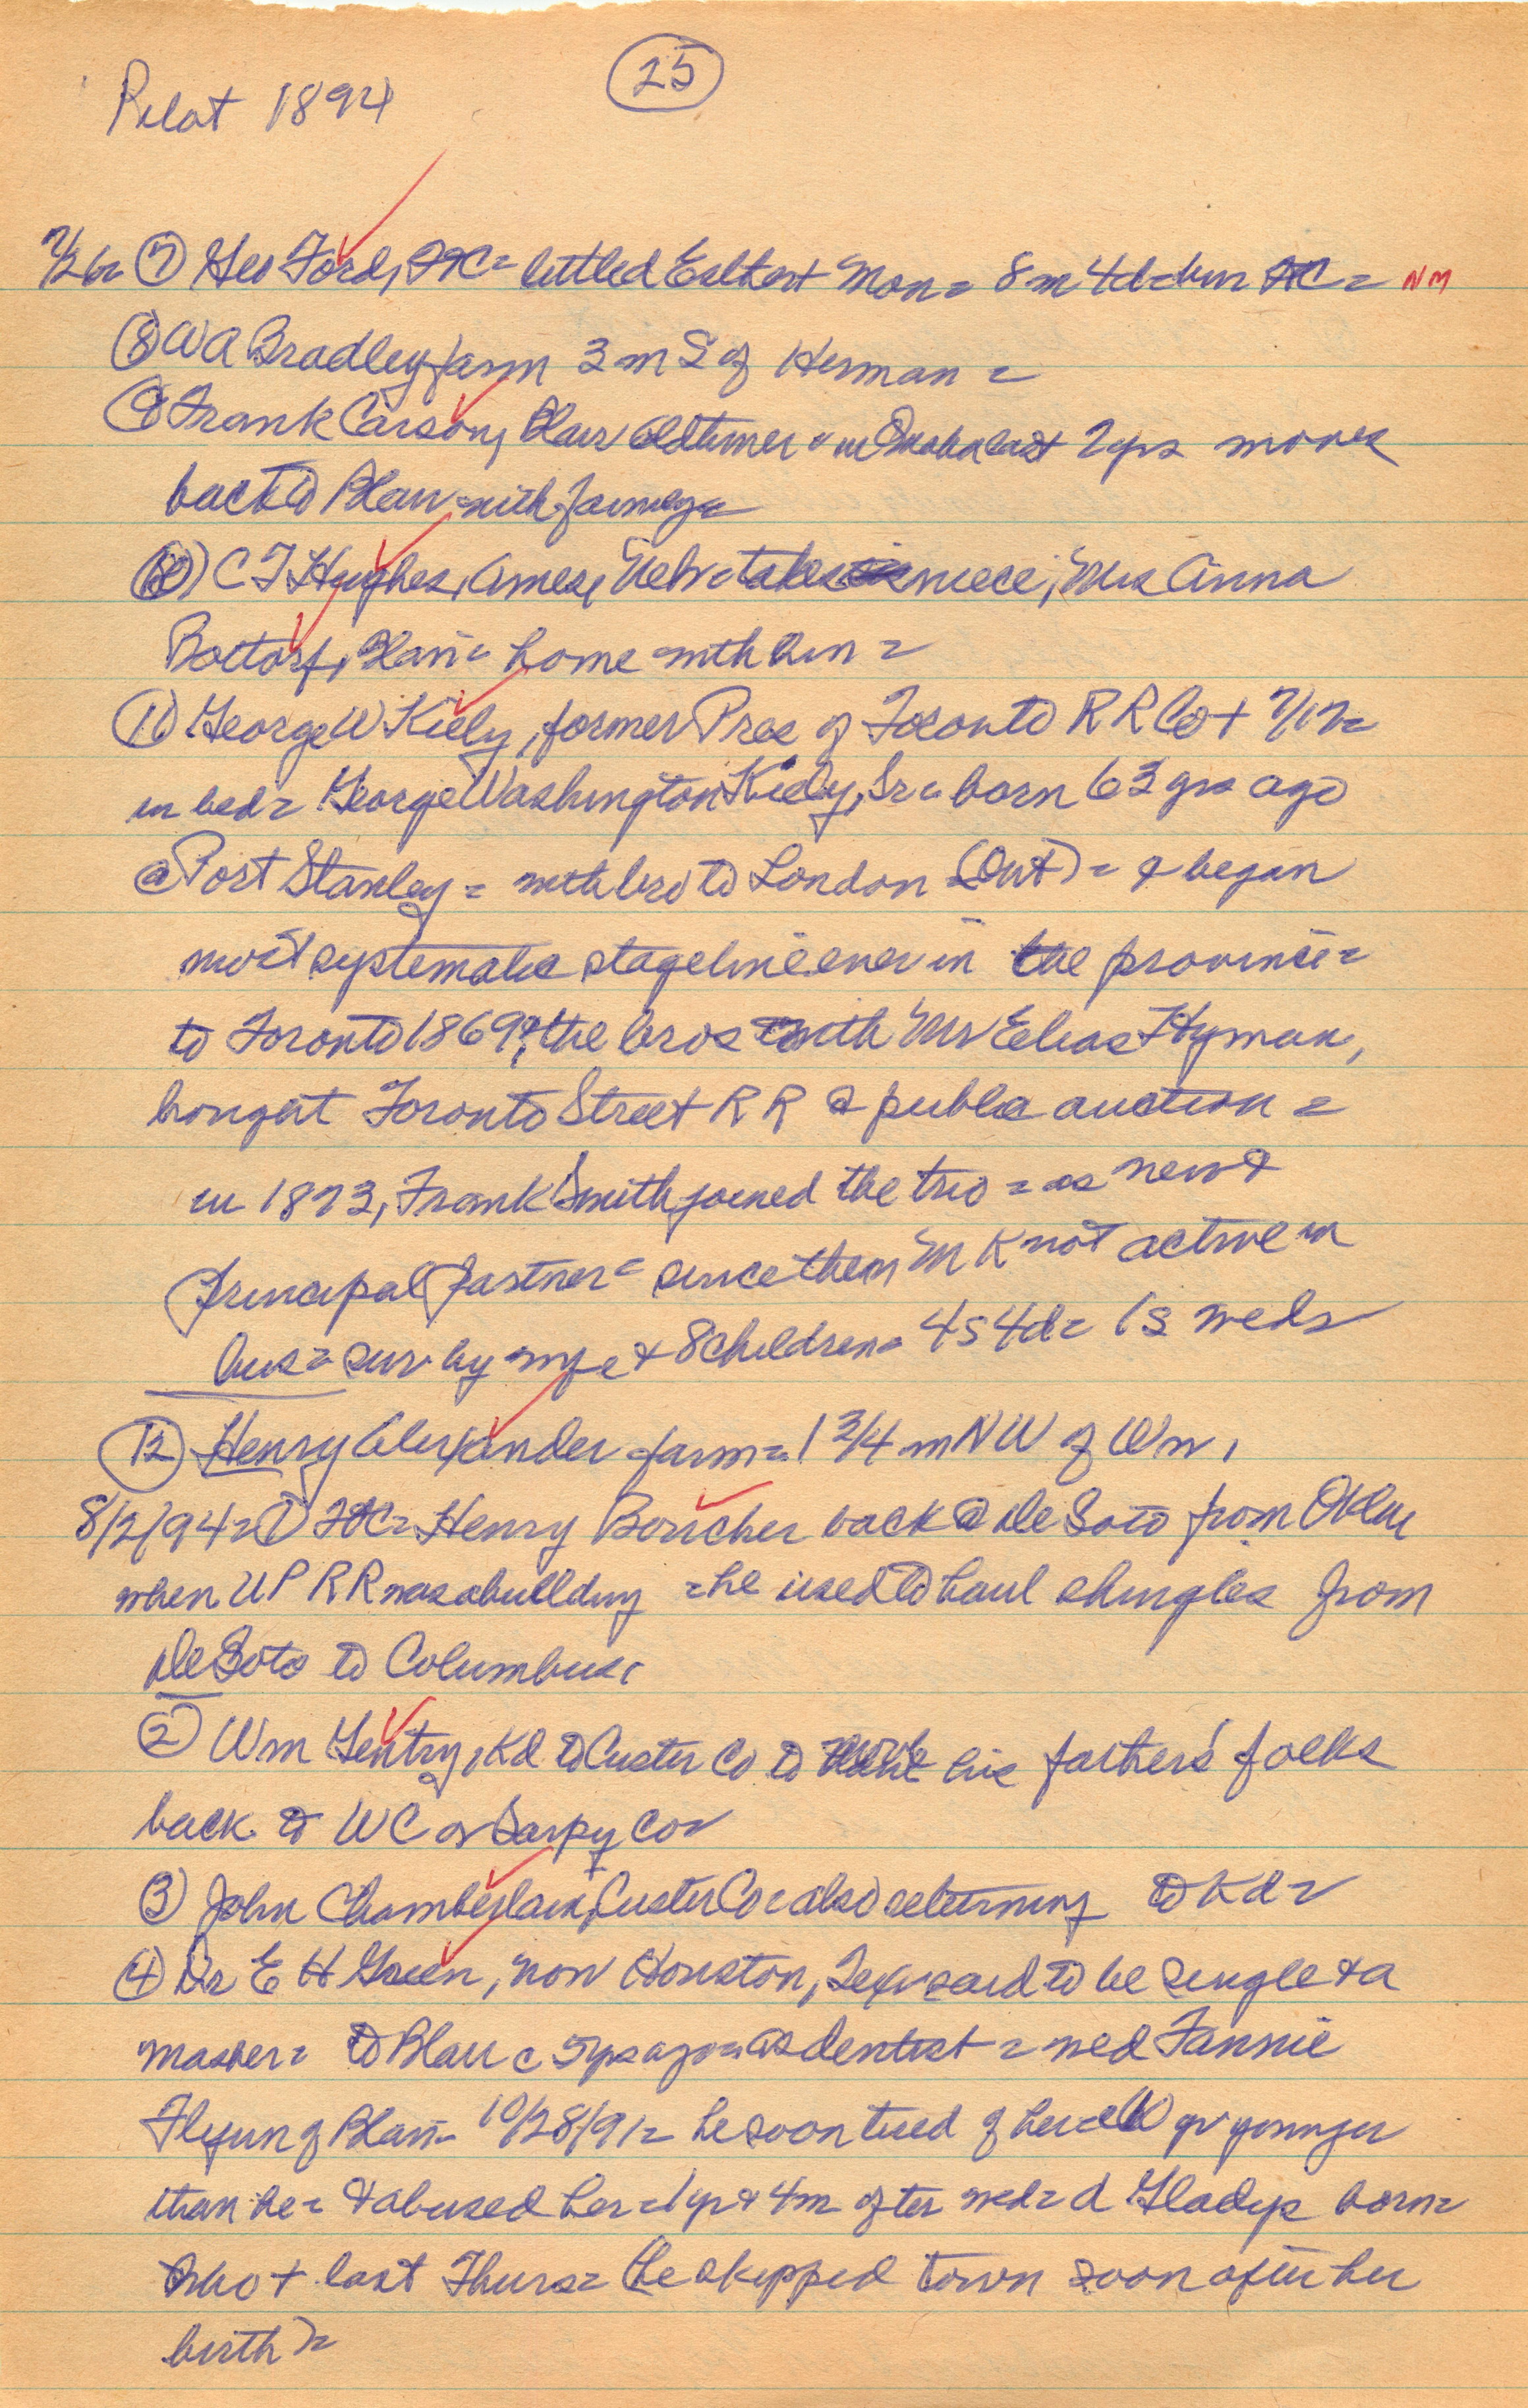 Pilot 1894
25
7/26= (7) Geo Ford, FtC= settled Elkhorn Mon= 8 m 4d= bur FtC= NM
(8) W A Bradley farm 3 m S of Herman =
(9) Frank Carson, Blair oldtimer = in Omaha last 2 yrs moves
back to Blair = with family=
(10) C T Hughes, Ames, Nebr= takes niece, Mrs Anna
Bottorf, Blair= home with him =
(11) George W Kiely, former Pres of Toronto R R Co + 7/17=
in bed= George Washington Kiely, Sr= born 63 yrs ago
@ Port Stanley = with bro to London (Ont) = & began
most systematic stage line ever in the province=
to Toronto 1869?, the bros with Mr Elias Hyman,
bought Toronto Street R R @ public auction =
in 1873, Frank Smith joined the trio = as new &
principal partner= since then Mr K not active in
bus= sur by wife + 8 children= 4s 4d= 1s weds
(12) Henry Alexander farm= 1 3/4 m NW of Wn,
8/2/94= (1) FtC= Henry Boucher back @ De Soto from Okla
when UP RR was abuilding = he used to haul shingles from
De Soto to Columbus,
(2) Wm Gentry, Kd to Custer Co to move his father's folks
back to WC or Sarpy Co=
(3) John Chamberlain, Custer Co= also returning to Kd=
(4) Dr E H Green, now Houston, Tex= said to be single & a
masher= to Blair c 5 yrs ago= as dentist = wed Fannie
of Blair= 10/28/91= he soon tired of her= yr younger
than he= & abused her= 1 yr & 4m after wed= d Gladys born=
who + last Thurs= (he skipped town soon after her
birth)=